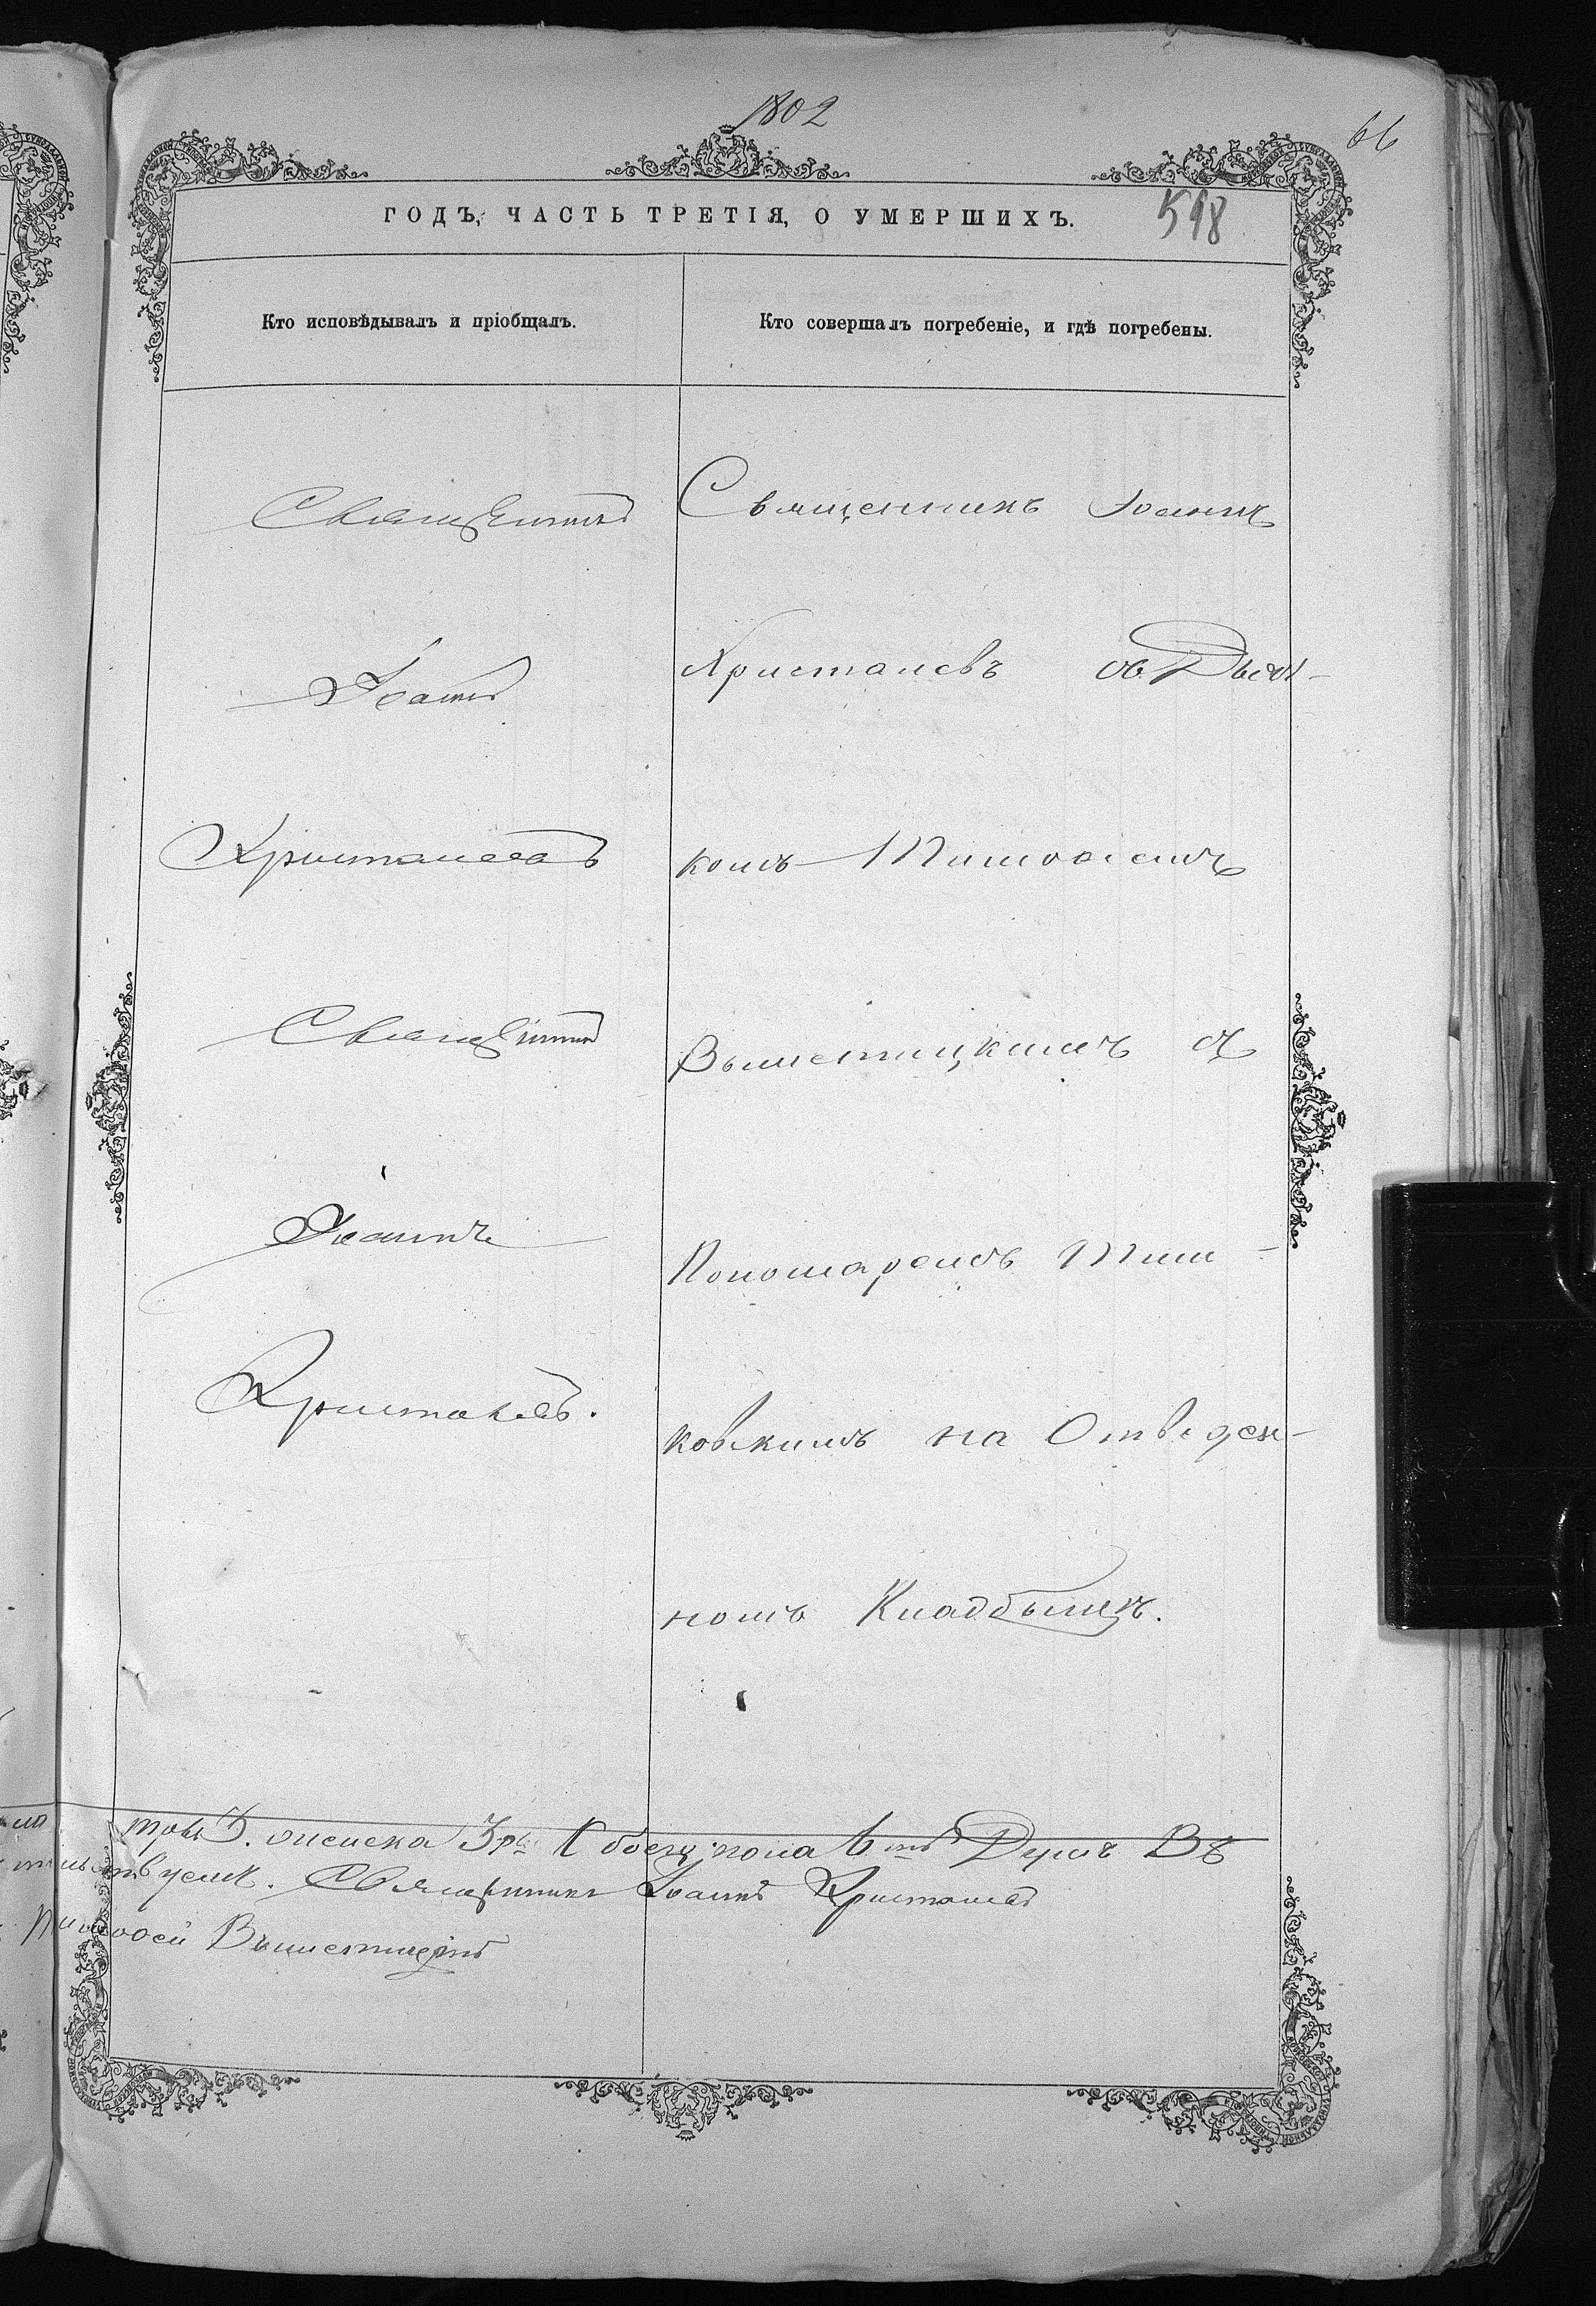 1802
66
ГОДЪ, ЧАСТЬ ТРЕТІЯ, О УМЕРШИХЪ.
598
Кто исповѣдывалъ и пріобщалъ.
Кто совершалъ погребеніе, и гдѣ погребены.
Священникъ
Іоаннъ
Кристалевъ
Священникъ
Іоаннъ
Кристалевъ.
Священникъ Іоаннъ
Кристалевъ съ Дьяч-
комъ Тимофеемъ
Вышетицкимъ съ
Пономаремъ Тим-
ковскимъ на Отведен-
номъ Кладбыщѣ.
женска 3 Обоего пола 6 Душъ Въ
Священникъ Іоаннъ Кристалевъ
Тимофей